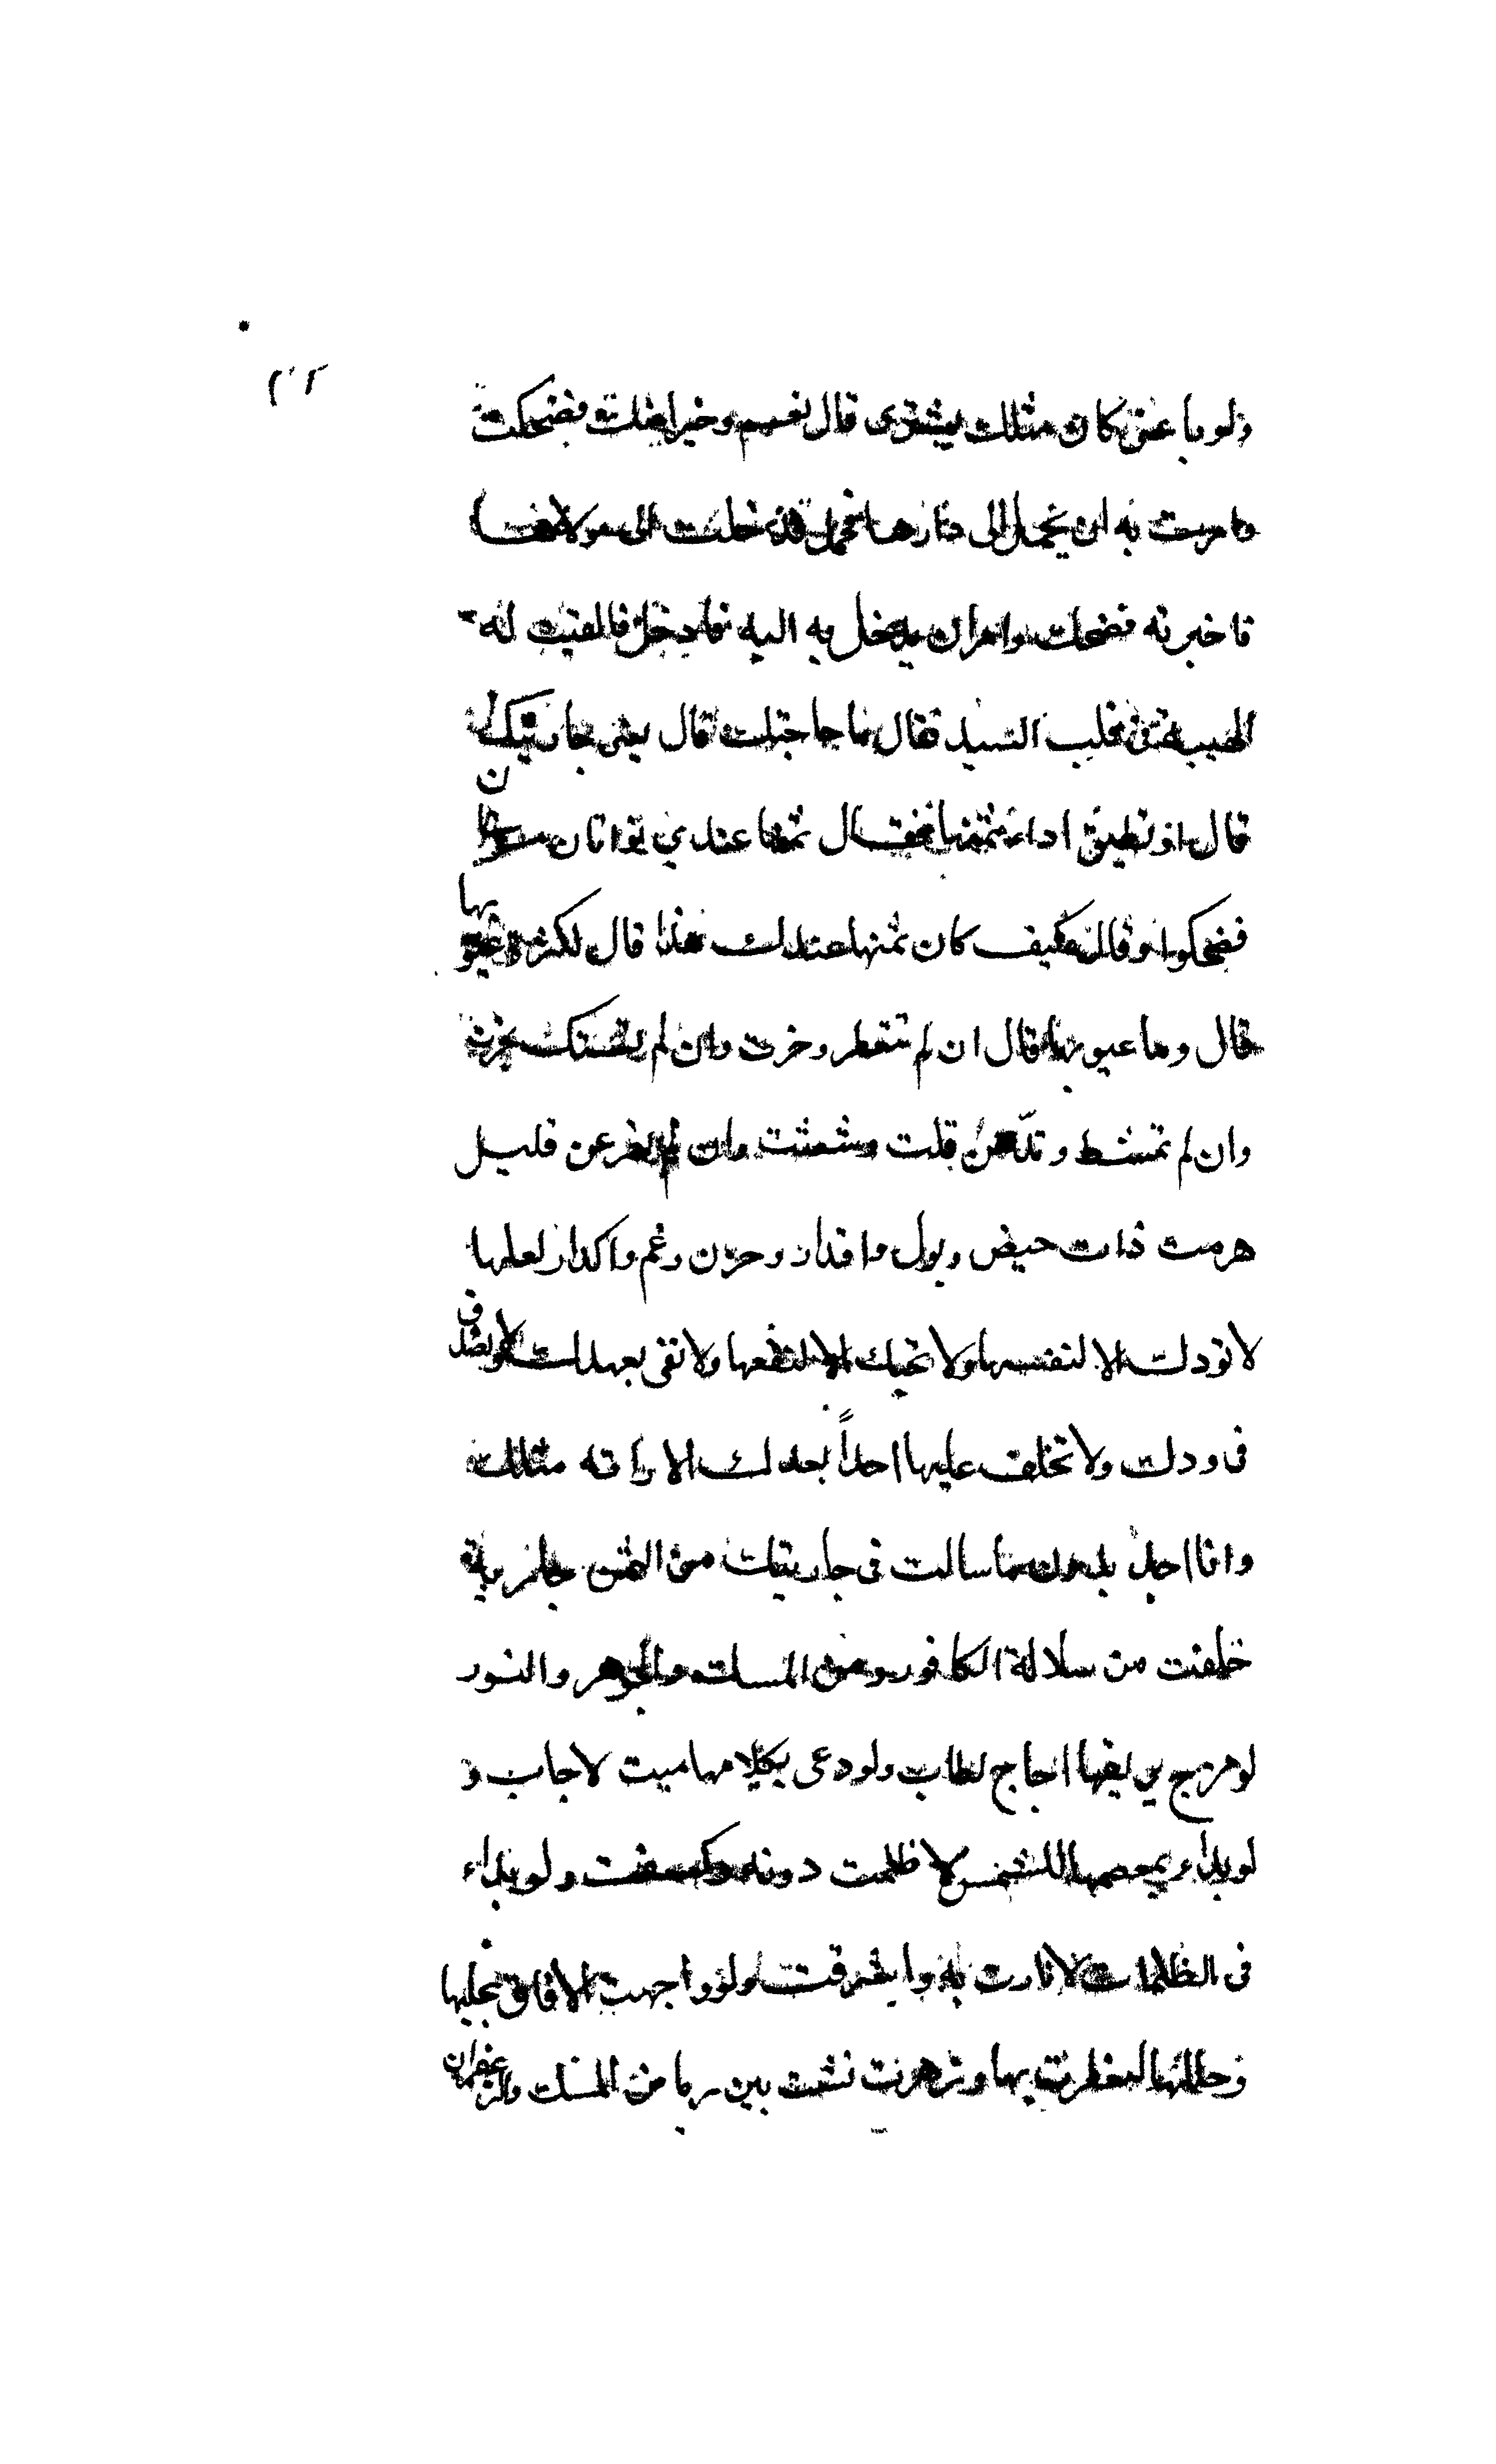 ولو باعني كان مثلك يشتري قال نعم وخيرا منك فضحكت
وامرت به ان يحمل الى دارها فحمل فدخلت الى مولاها
فاخبرته فضحك وامر ان يدخل به اليه فادخل فالقيت له
الهيبة في قلب السيد فقال ما حاجتك قال بعني جاريتك
قال اوتطيق اداء ثمنها فقال ثمنها عندي نواتان مسوستان
فضحكوا وقالوا كيف كان ثمنها عندك هذا قال لكثرة عيوبها
قال وما عيوبها قال ان لم تتعطر وخرت وان لم تستك بخرت
وان لم تمتشط وتدّهن قلت وشعثت وان تعمر عن قليل
هرمت ذات حيض وبول واقذار وحزن وغم واكدار لعلها
لا تودك الا لنفسها ولا تحبك الا لتنعمها ولا تفي بعهدك ولا تصدق
في ودك ولا تخلف عليها احداً بعدك الا راته مثلك
وانا اجد بدون ما سالت في جاريتك من الثمن جارية
خلقت من سلالة الكافور ومن المسك والجوهر والنور
لو مزج بريقها اجاج لطاب ولو دعى بكلامها ميت لاجاب و
لو بداء معصمها للشمس لاظلمت دونه وكسفت ولو بداء
في الظلمات لانارت به واشرقت ولو واجهت الافاق بحليها
وحللها لتعطرت بها وتزهرت نشت بين ربا من المسك والزعفران